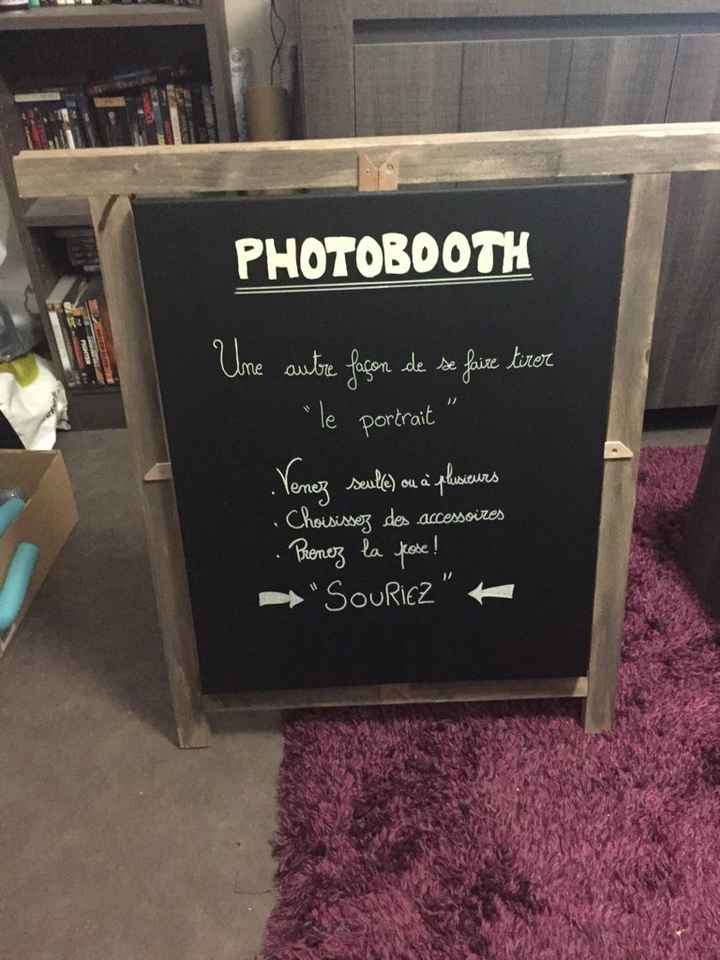 PHOTOBOOTH
Une autre façon de se faire tirer
"le portrait"
. Venez seul(e) ou à plusieurs
. Choisissez des accessoires
. Prenez la pose!
"SOURIEZ"